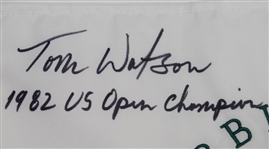 Tom Watson
1982 US Open Champion
BBL